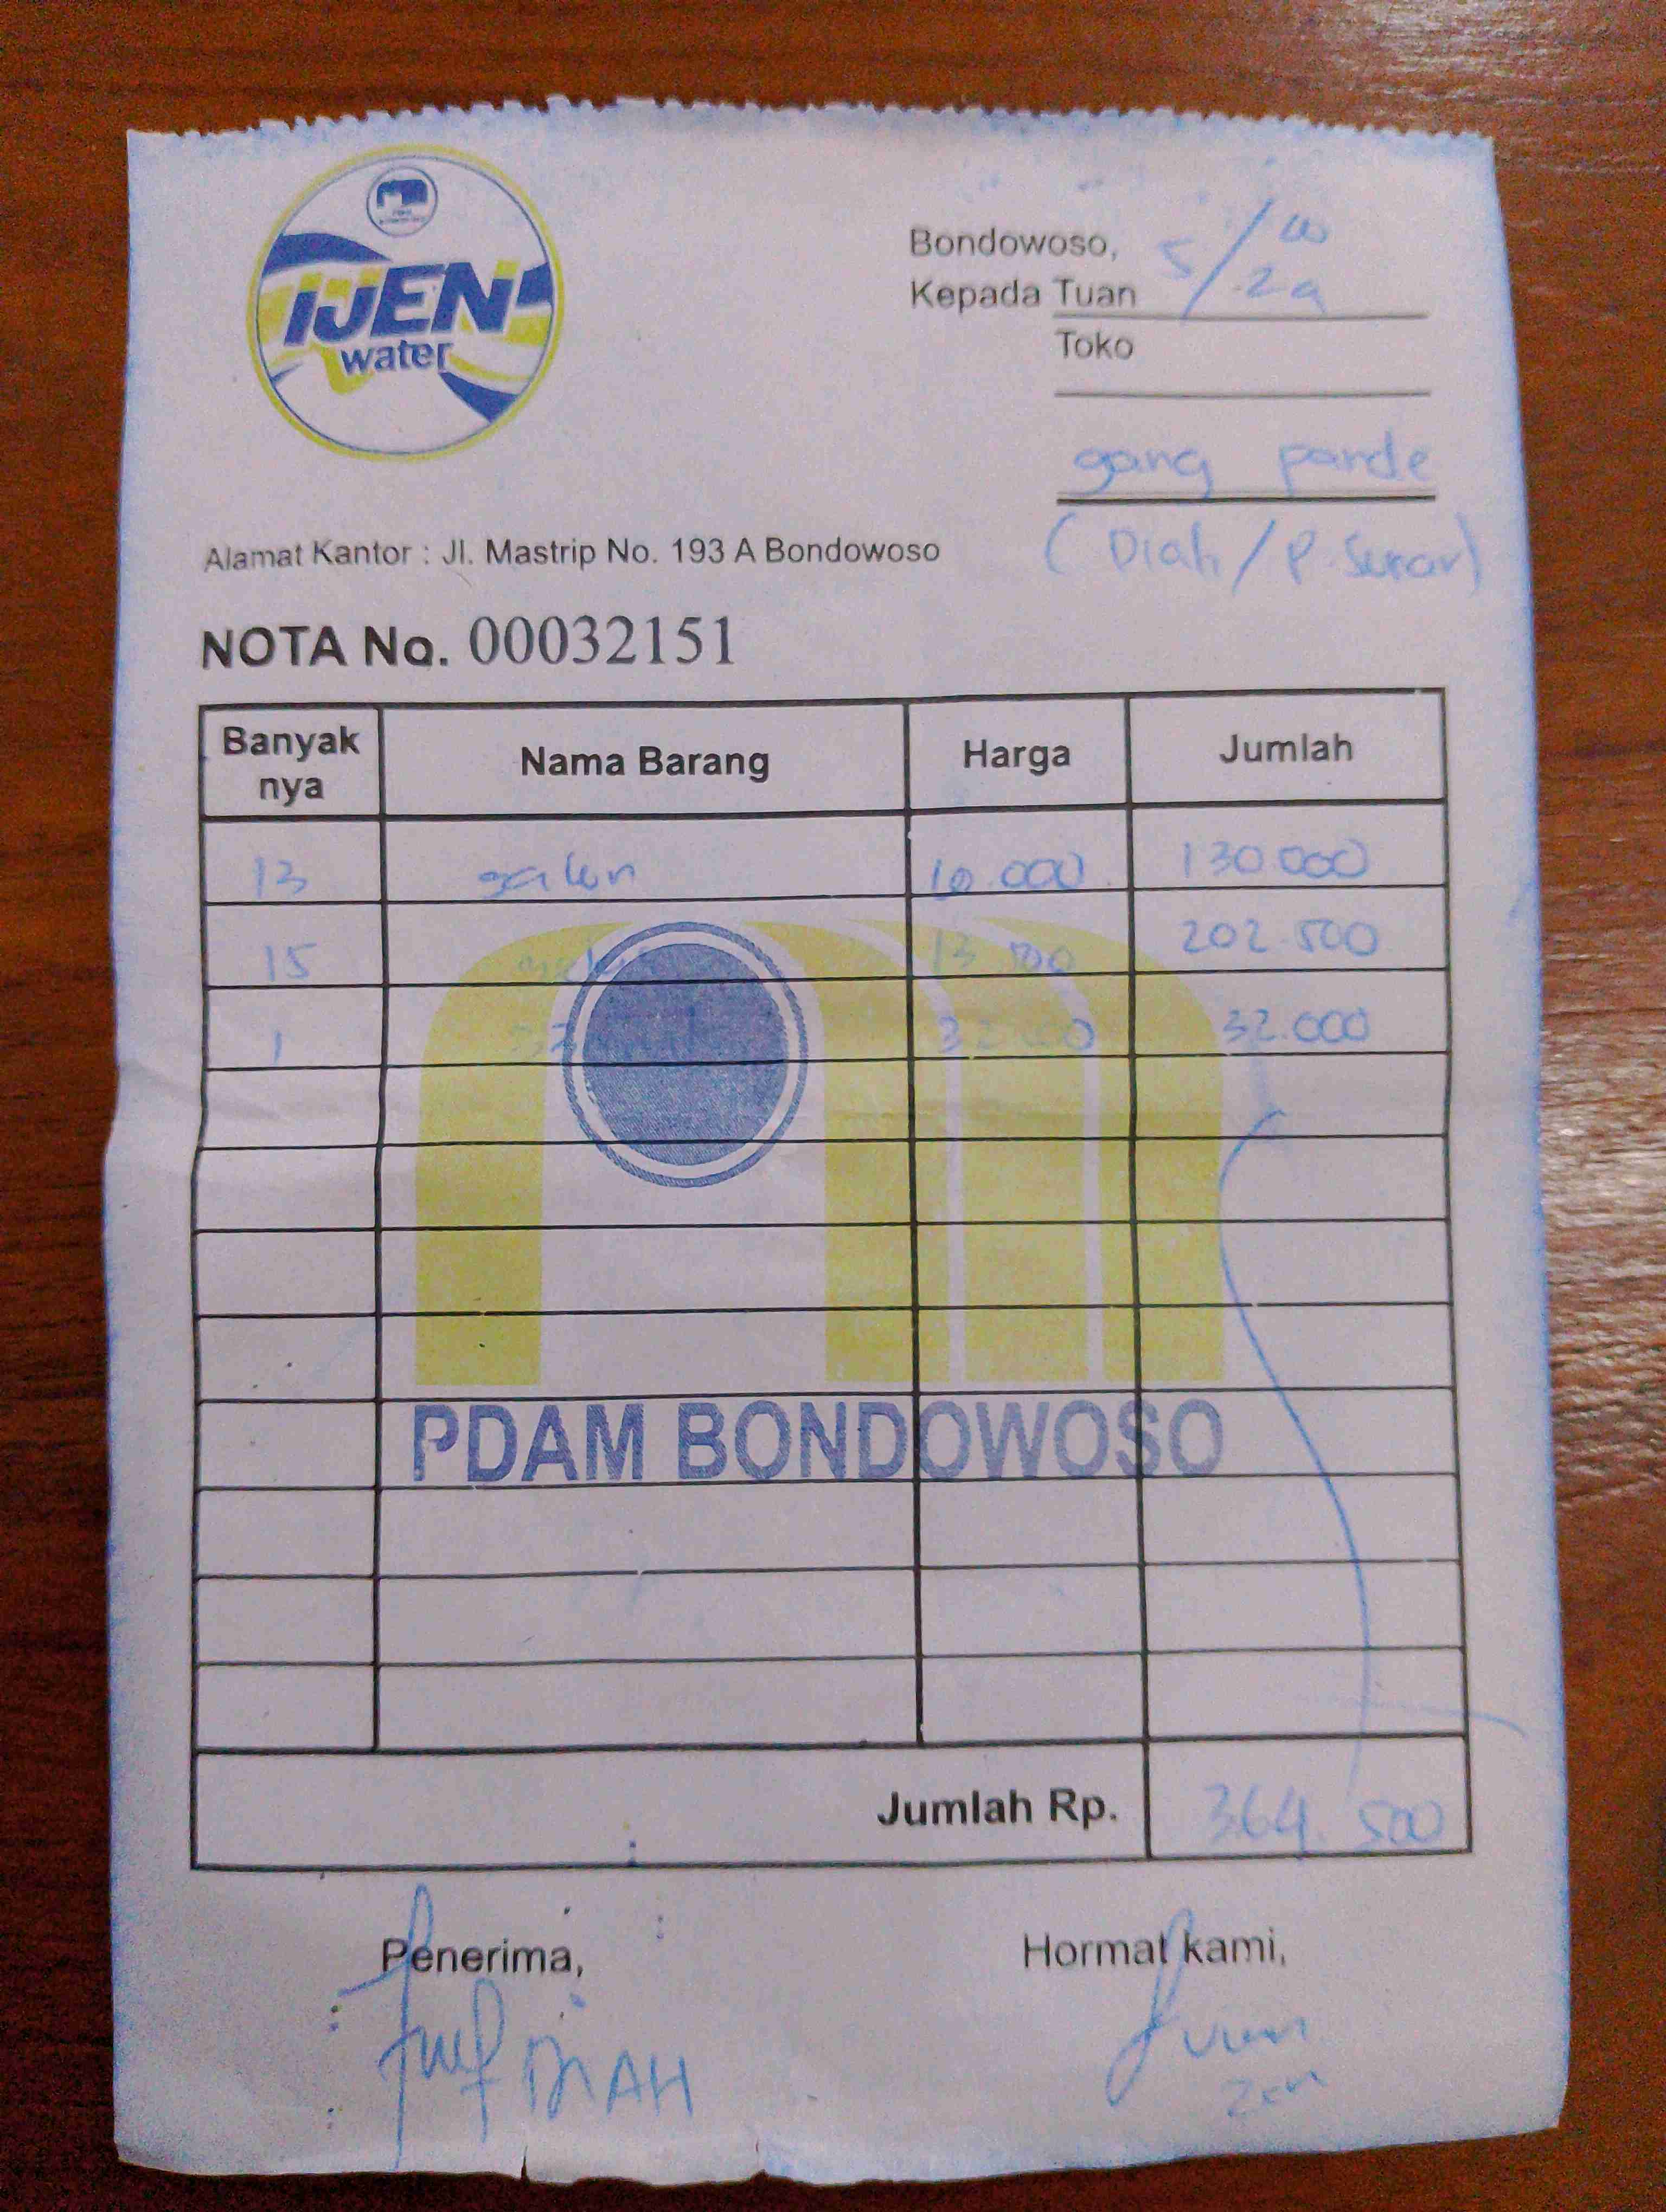 IJEN
water
Bondowoso, 5/
Kepada Tuan
Toko
gang pande
(Diah / P.
Alamat Kantor : Jl. Mastrip No. 193 A Bondowoso
NOTA No. 00032151
Banyak nya Nama Barang Harga Jumlah
13 galon 10.000 130.000
15 13.500 202.500
1 32.000 32.000
PDAM BONDOWOSO
Jumlah Rp. 364.500
Penerima, Hormat kami,
DIAH